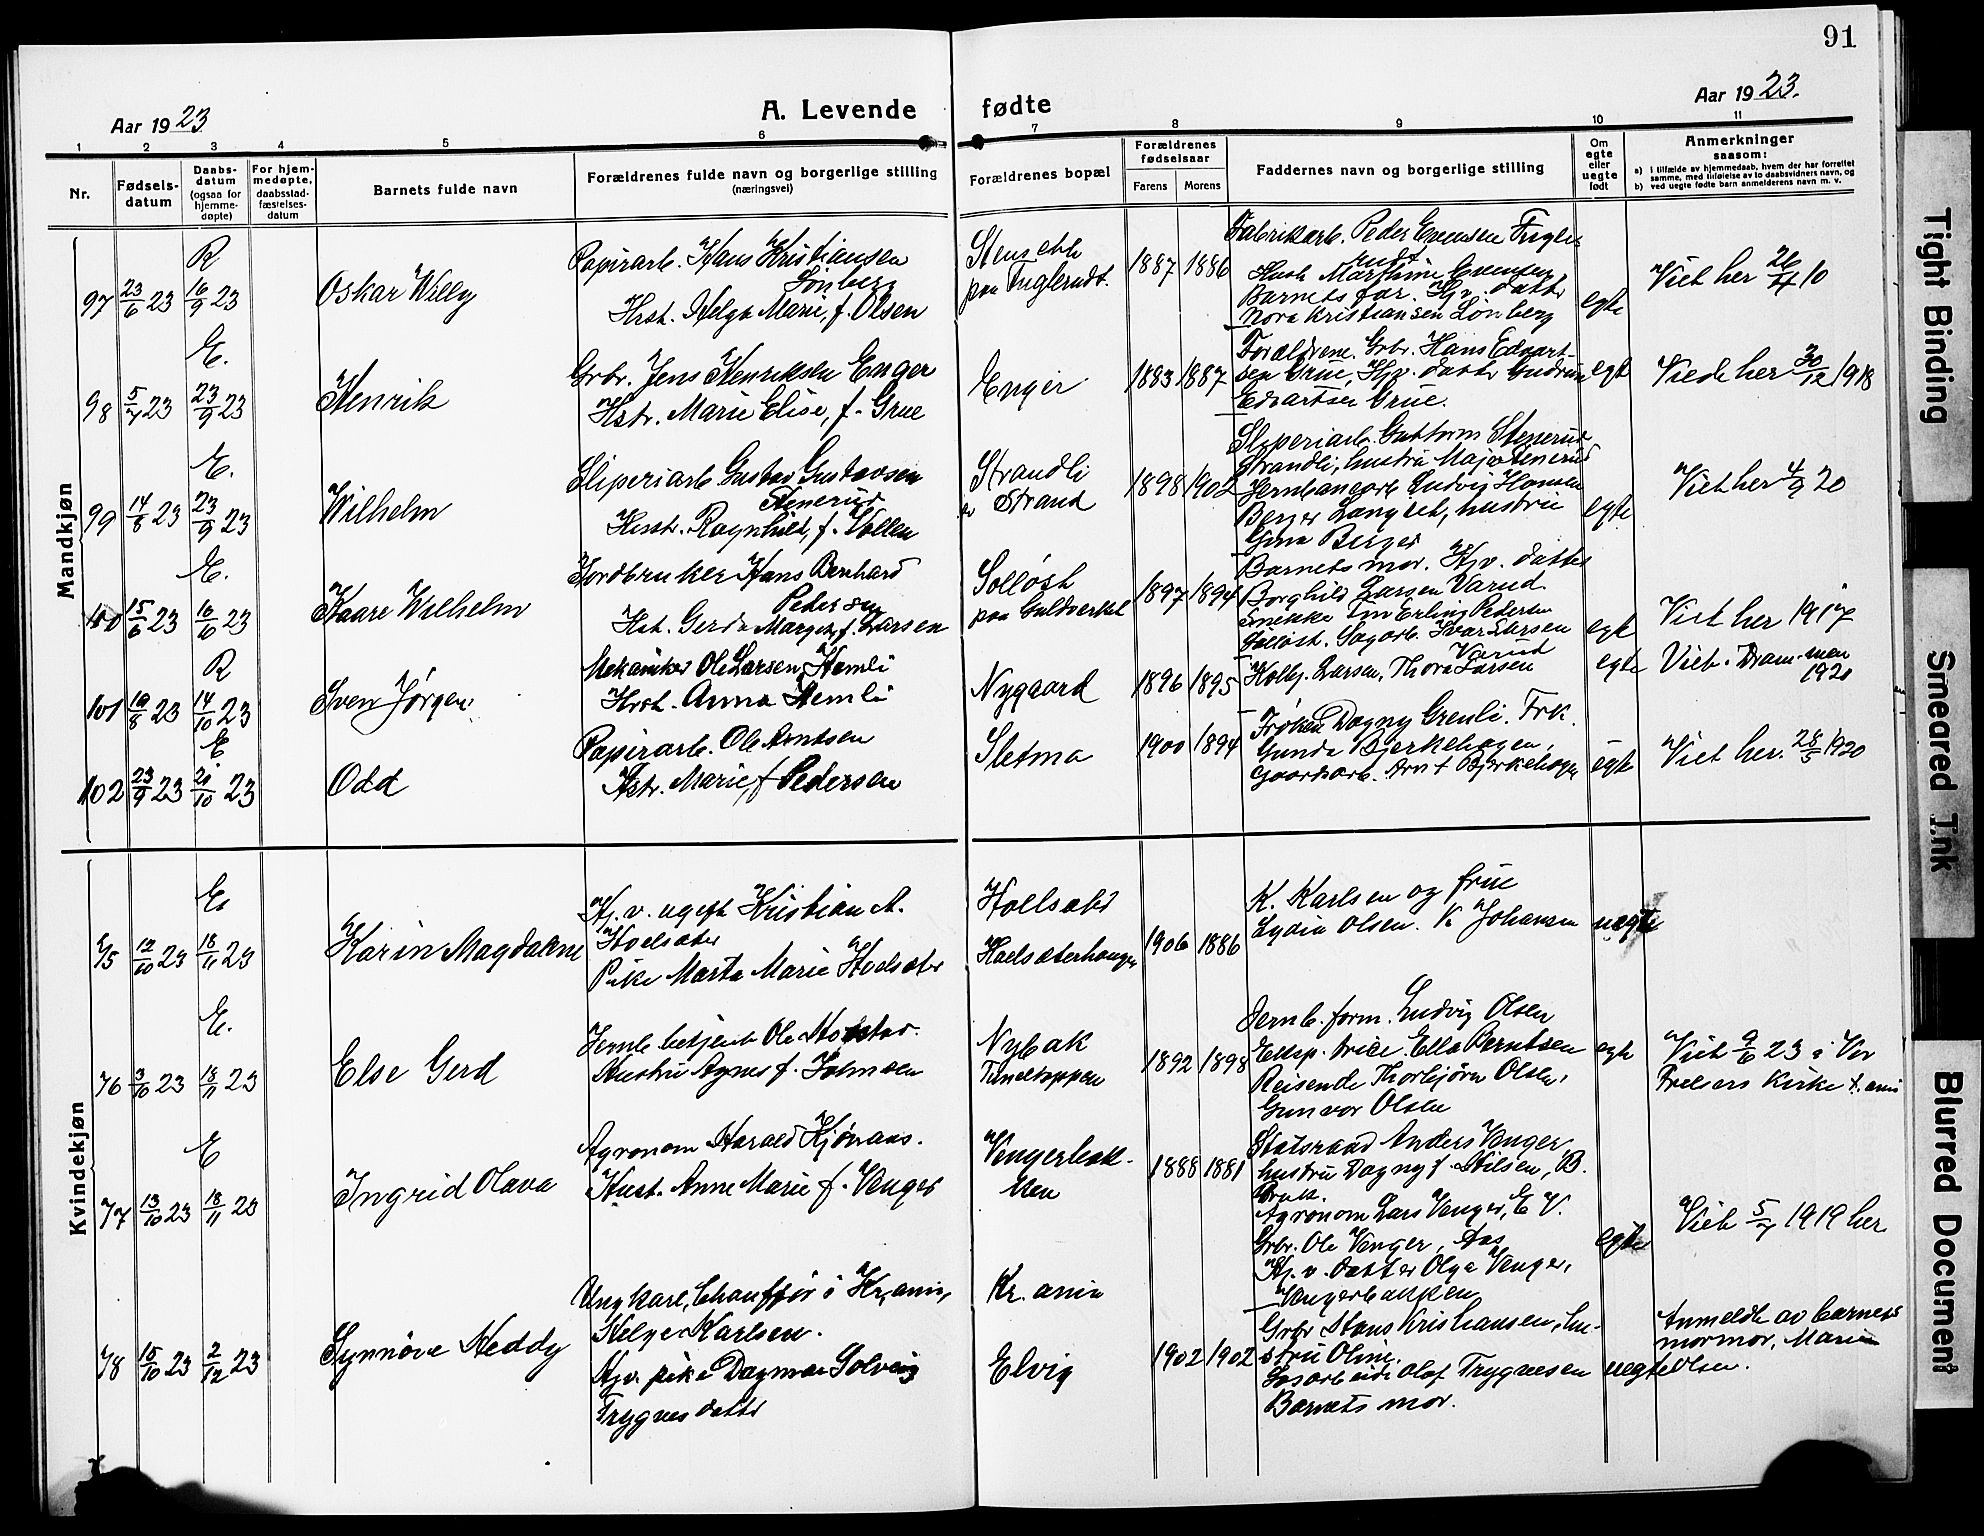 91
Aar 1923
A. Levende fødte
Aar 1923.
1 2 3 4 5 6 7 8 9 10 11
Nr.
Fødsels-
datum
Daabs-
datum
(ogsaa for
hjemme-
døpte)
For hjem-
medøpte,
daabsstad-
fæstelses-
datum
Barnets fulde navn
Forældrenes fulde navn og borgerlige stilling
(næringsvei)
Forældrenes bopæl
Forældrenes
fødselsaar
Farens Morens
Faddernes navn og borgerlige stilling
Om
egte
eller
uegte
født
Anmerkninger
saasom:
a) i tilfælde av hjemmedaab, hvem der har forrettet
samme, med tilføielse av to daabsvidners navn, og
b) ved uegte fødte barn anmelderens navn m. v.
Mandkjøn
R
97 23/6 23 16/9 23
Oskar Willy
Papirarb. Hans Kristiansen
Lönberg
Hust. Helga Marie, f. Olsen
paa Fuglerudt.
1887 1886
Fabrikarb. Peder Evensen Fugle
rudt
Hust. Marthine Evensen
Barnets far. Hjv. datter
Nora Kristiansen Lönberg
egte
Viet her 26/4 10
E.
98 5/7 23 23/9 23
Henrik
Grbr. Jens Henriksen Enger
Hstr. Marie Elise, f. Grue
Enger
1883 1887
Forældrene. Grbr. Hans Edvart-
sen Grue, Hjv. datter Gudrun
Edvartsen Grue.
egte
Viede her 30/12 1918
E.
99 14/8 23 23/9 23
Wilhelm
Sliperiarb Gustav Gustavsen
Stenerud
Hustr. Ragnhild, f. Vollen
Strandli
av Strand
1898 1902
Sliperiarb. Guttorm Stenerud
Strandli, hustru Maja Stenerud
Jernbanearb Ludvig Hansen
Berger Langset, hustru
Gina Berger
egte
Viet her 4/9 20
E.
100 15/6 23 16/6 23
Kaare Wilhelm
Jordbruker Hans Bernhard
Pedersen
Hst. Gerda Margit, f. Larsen
Solløst
paa Guldverket
1897 1894
Barnets mor. Hjv. datter
Borghild Larsen Varud
Erling Pedersen
Solløst. Sagarb. Ivar Larsen
Varud
egte
Viet her 1917
R
101 19/8 23 14/10 23
Sven Jørgen
Mekaniker Ole Larsen Hemli
Hust. Anna Hemli
Nygaard
1896 1895
Kolbj. Larsen, Thora Larsen
egte
Viet i Drammen
1920
E
102 23/9 23 21/10 23
Odd
Papirarb. Ole Arntsen
Hstr. Marie f Pedersen
Sletmo
1900 1894
Frøken Dagny Grenli. Frk.
Gunda Bjerkehagen,
Gaardsarb. Arnt Bjerkehagen
egte
Viet her. 28/5 1920
Kvindekjøn
E.
75 12/10 23 18/11 23
Karin Magdalene
Hj. v. ugift Kristian A.
Hoelsæter
Pike Marta Marie Hoelsæter
Hoelsæter
Hoelsæterhaugen
1906 1886
K. Karlsen og frue
Lydia Olsen. K Johansen
uegte
E.
76 3/10 23 18/11 23
Else Gerd
Jernb. betjent Ole Holstad.
Hustru Agnes f. Johnsen
Nybak
Tuneltoppen
1892 1898
Jernb. form. Ludvig Olsen
Eksp. trice. Ella Berntsen
Reisende Thorbjørn Olsen,
Gunvor Olsen
egte
Viet 9/6 23 i Vor
Frelsers Kirke Kr. ania
E
77 13/10 23 18/11 23
Ingrid Olava
Agronom Harald Kjönaas.
Hust. Anne Marie f. Venger
Vengerbak-
ken
1888 1881
Statsraad Anders Venger
hustru Dagny f. Nilsen, B.
Bruk.
Agronom Lars Venger, E V.
Grbr. Ole Venger, Aas
Hj. v. datter Olga Venger,
Vengerbakken
egte
Viet 5/7 1919 her
78 15/10 23 2/12 23
Synnöve Heddy
Ungkarl, Chauffør i Kr.ania,
Helge Karlsen.
Hjv. pike Dagmar Solveig
Trygvesdatter
Kr. ania
Elvig
1902 1902
Grbr Hans Kristiansen, hu-
stru Oline.
Løsarbeider Olaf Trygvesen
Barnets mor.
uegte
Anmeldt av barnets
mormor, Marie
Olsen.
Tight Binding
Smeared Ink
Blurred Document